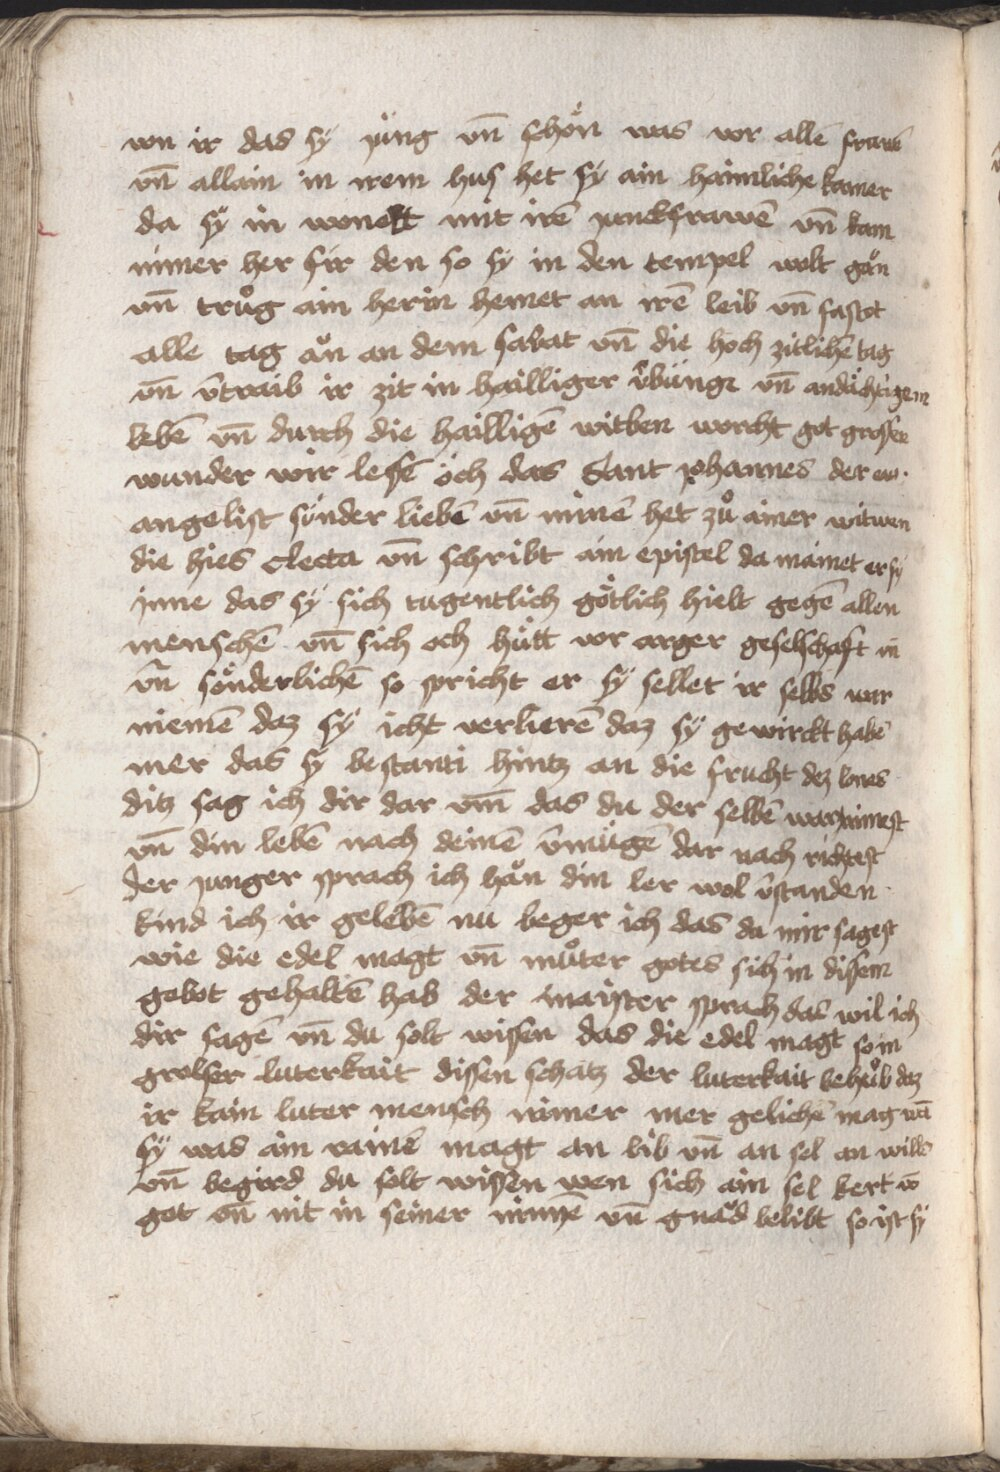 von ir das sy jung vn̄ schön was vor allē frawē
vn̄ allain in irem hus het sy ain haimliche kamer
da sy in wonet mit irē junckfrawē vn̄ kam
nimer her fir den so sy in den tempel wolt gän
vn̄ trůg ain herin hemet an irē leib vn̄ fastot
alle tag än an dem sabat vn̄ die hoch zitlichē tag
vn̄ v̄traib ir zit in hailliger v̈bung vn̄ andächtigem
lebē vn̄ durch die hailligē witben worcht got grosse
wunder wir lesē öch das Sant johannes der ew.
angelist sunder liebē vn̄ minē het zů ainer witwen
die hies electa vn̄ schribt ain epistel da mainet er sy
inne das sy sich tugentlich götlich hielt gegē allen
menschē vn̄ sich och hütt vor arger geselschaft in
vn̄ sönderlichē so spricht er sy sellet ir selbs war
niemē daz sy icht verlierē daz sy gewirckt habē
mer das sy bestanti hintz an die frucht dez lones
ditz sag ich dir dar vm̄ das du der selbē war nimest
vn̄ din lebē nach deinē v̄mügē dar nach richtest
der junger sprach ich hän din ler wol v̄standen
kind ich ir gelebē nu beger ich das du mir sagest
wie die edel magt vn̄ můter gotes sich in dissem
gebot gehaltē hab der maister sprach das wil ich
dir sagē vn̄ du solt wissen das die edel magt so in
grosser luterkait dissen schatz der luterkait behůb daz
ir kain luter mensch nimer mer gelichē mag wā
sy was ain rainē magt an lib vn̄ an sel an willē
vn̄ begird du solt wissen wen sich ain sel kert vō
got vn̄ nit in seiner minē vn̄ gnäd belibt so ist sy